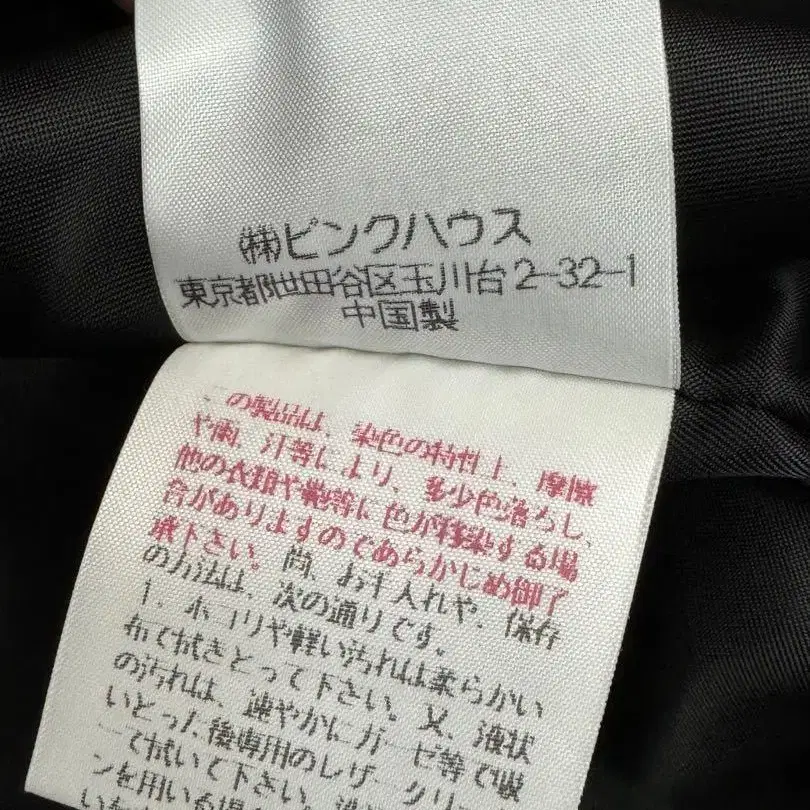 (株)ピンクハウス
東京都世田谷区玉川台2-32-1
中国製
この製品は、染色の特性上、摩擦
や雨、汗等により、多少色落ちし、
他の衣類や鞄等に色が移染する場
合がありますのであらかじめ御了
承下さい。尚、お手入れや、保存
の方法は、次の通りです。
1. ホコリや軽い汚れは柔らかい
布で拭きとって下さい。又、液状
の汚れは、速やかにガーゼ等で吸
いとった後専用のレザークリー
で拭いて下さい。
ンを用いる場合